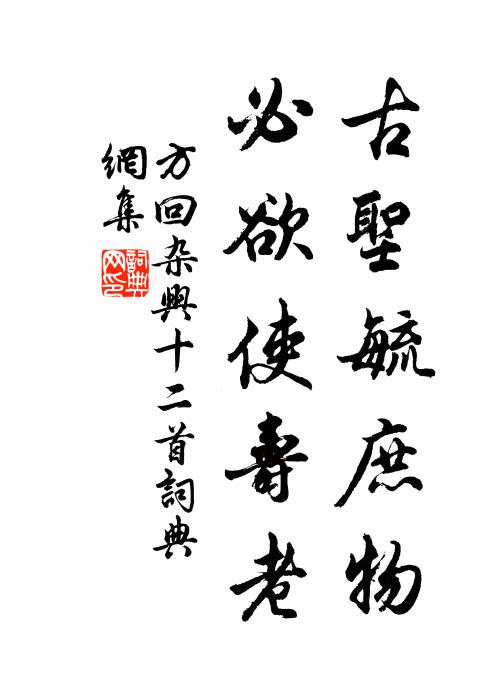 古聖毓庶物
必欲使壽老
方回杂興十二首詞典
網集
詞典
网印